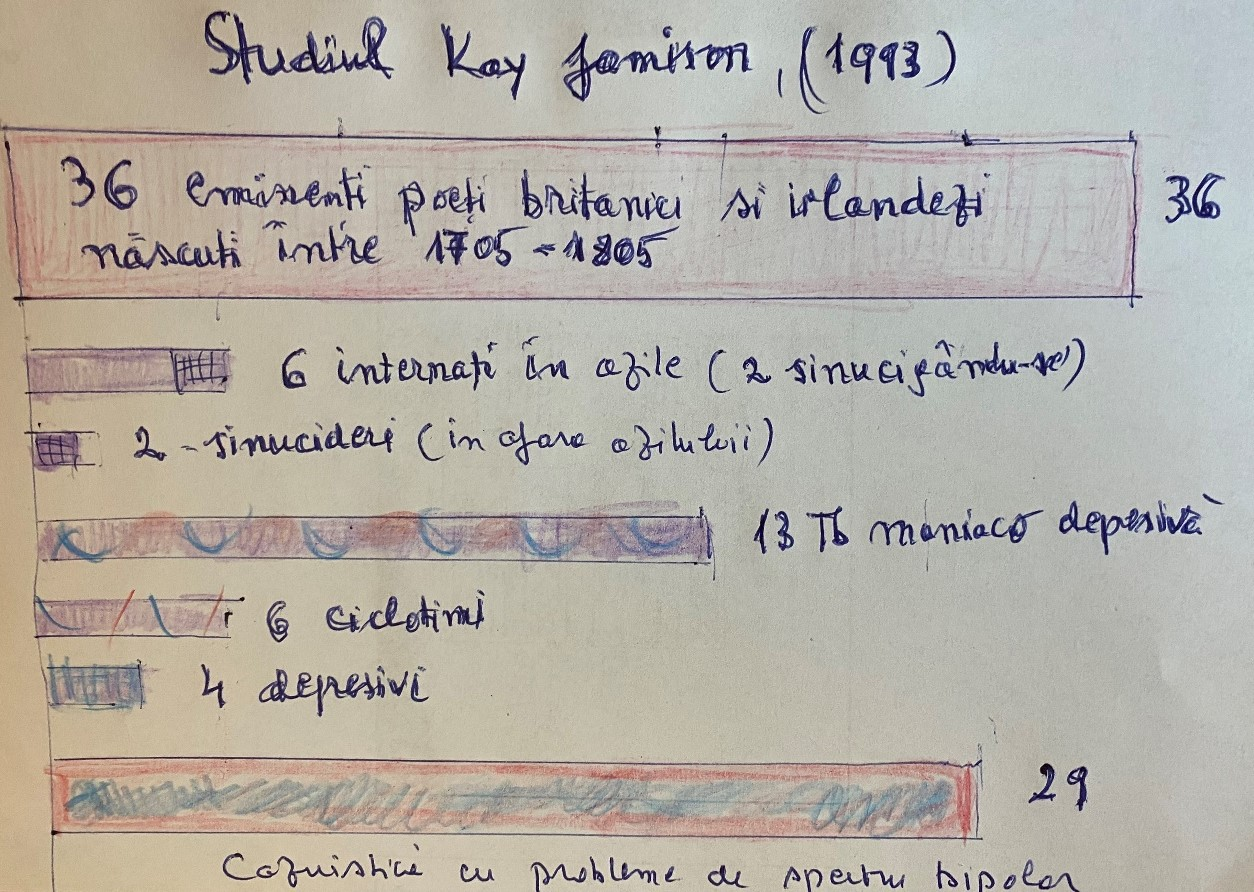 Studiul Kay Jamison, (1993)
36 eminenti poeți britanici si irlandezi
născuti între 1705 - 1805
36
6 internați în azile (2 sinucigându-se)
2 - sinucideri (in afara azilului)
13 Tb maniaco depresivă
6 ciclotimi
4 depresivi
29
Cazuistică cu probleme de spectru bipolar